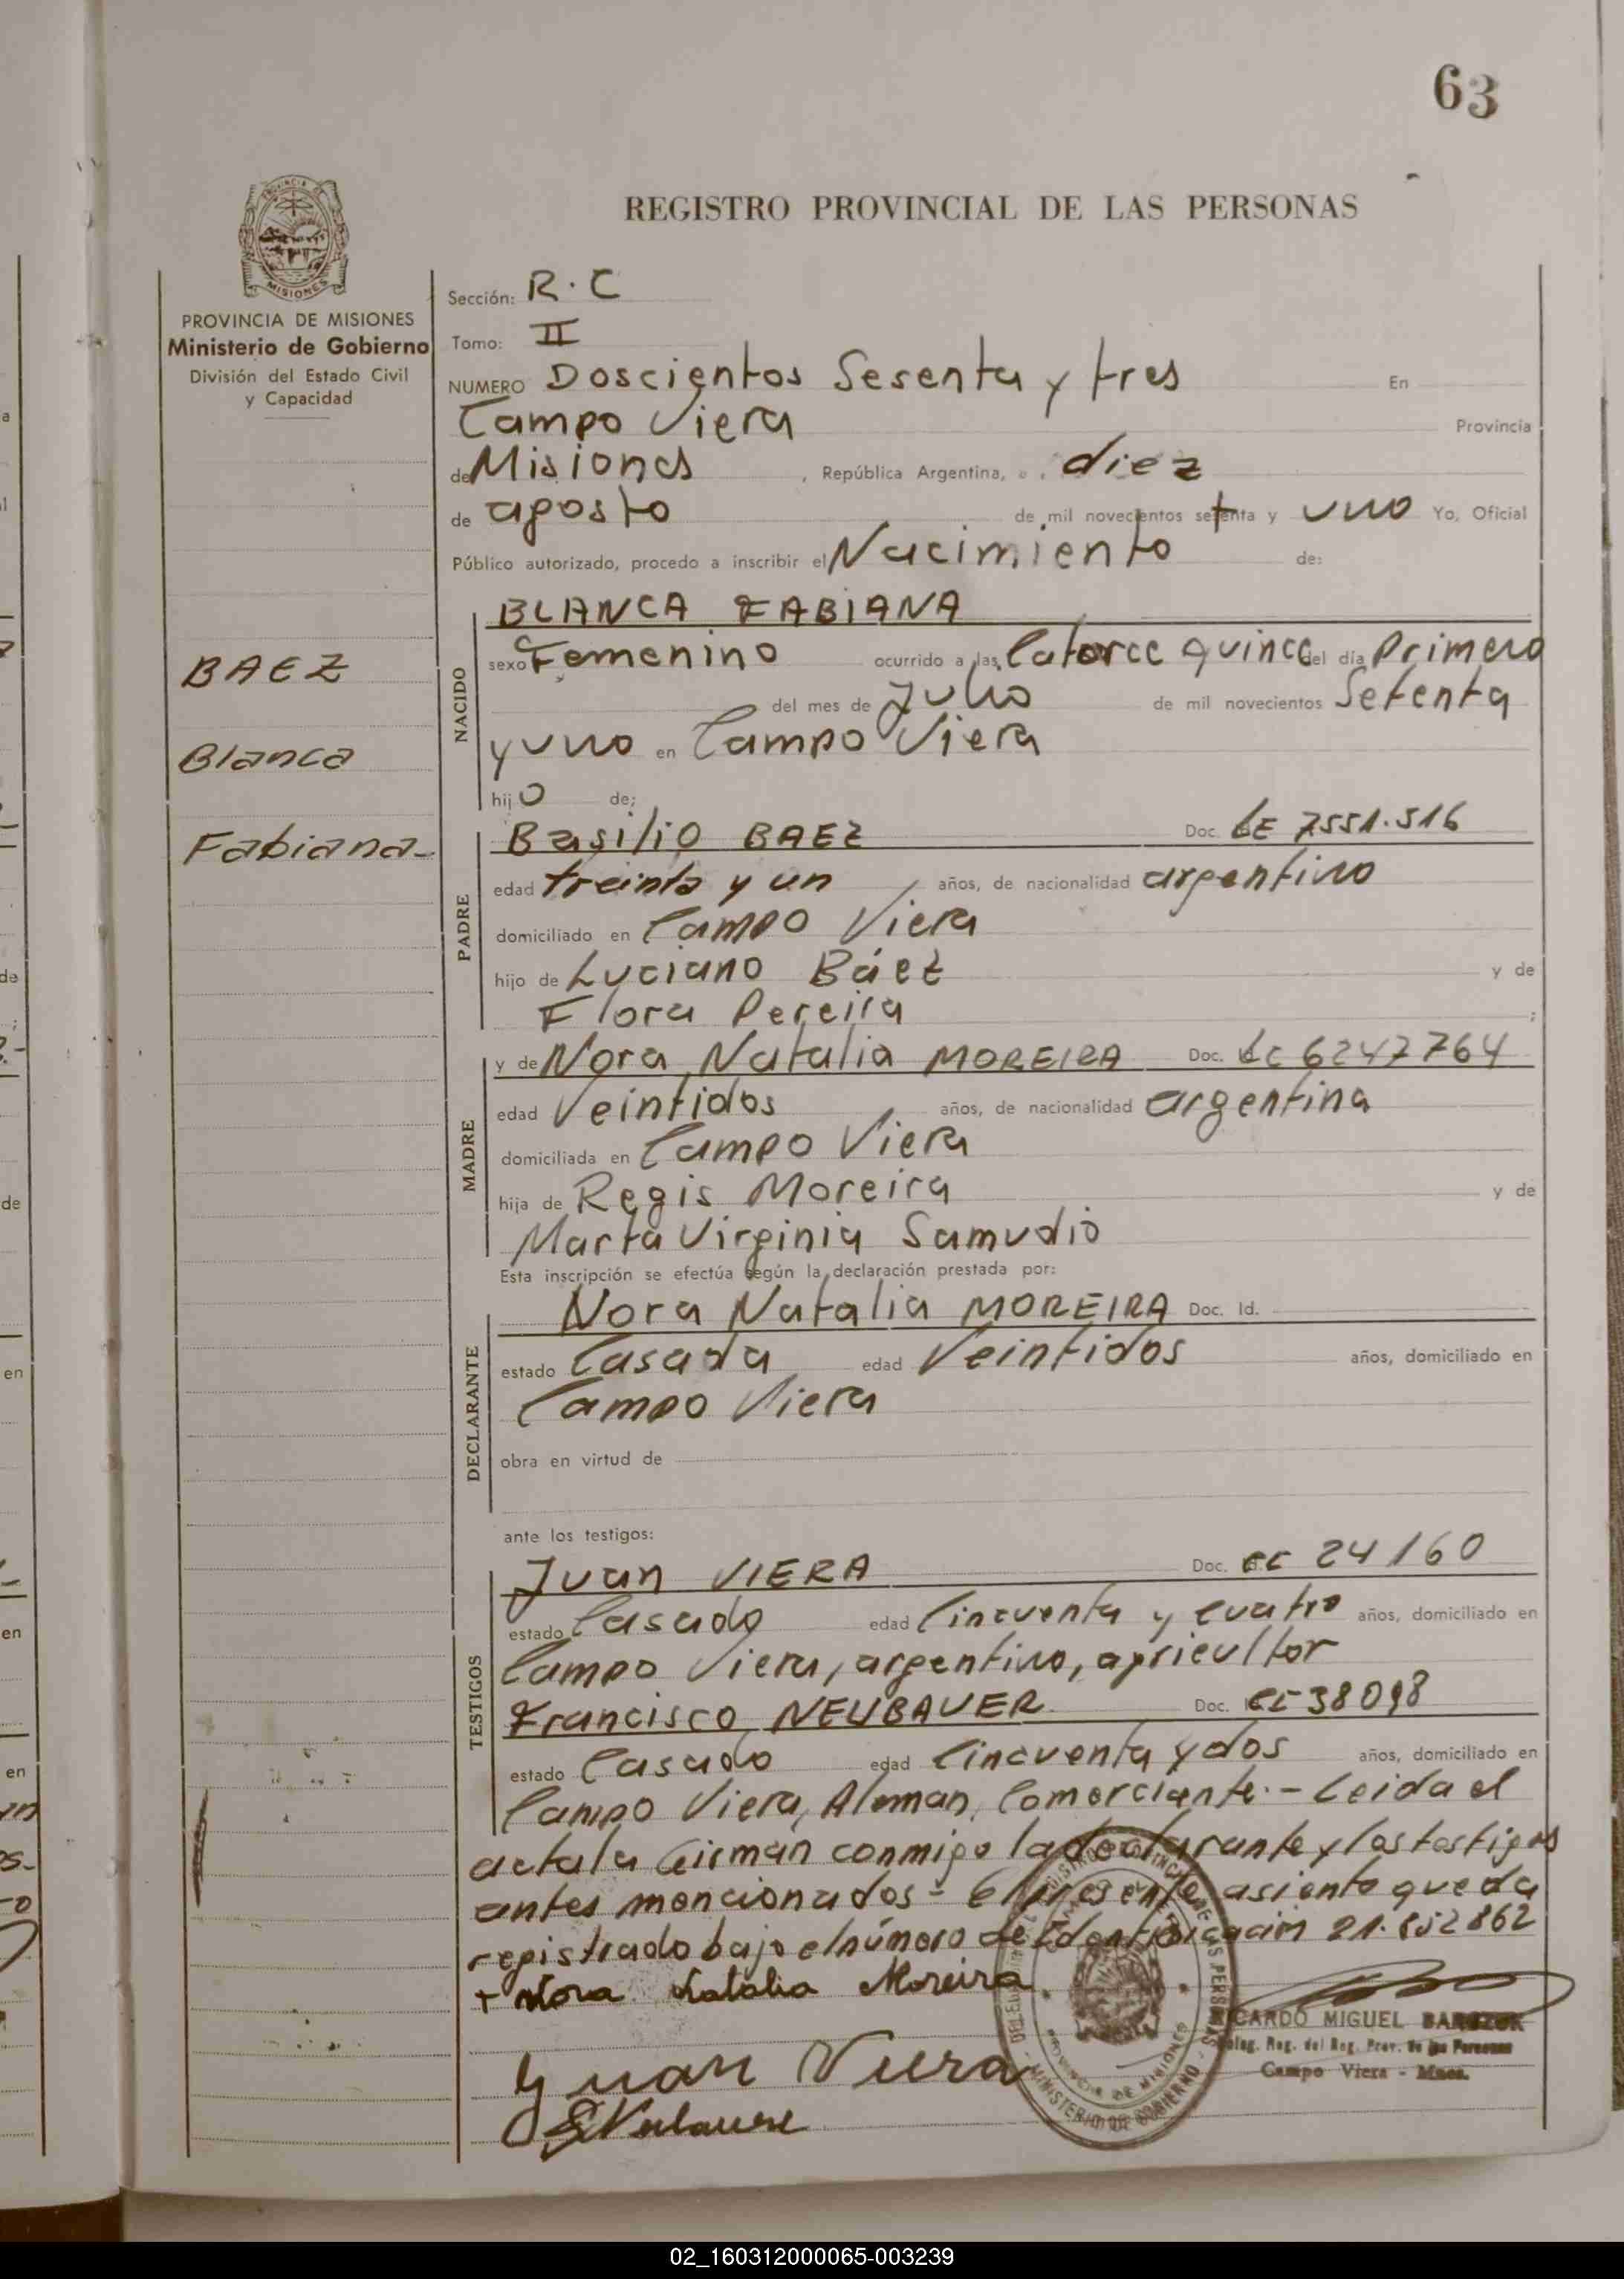 63
REGISTRO PROVINCIAL DE LAS PERSONAS
MISIONES
PROVINCIA DE MISIONES
Ministerio de Gobierno
División del Estado Civil
y Capacidad
Sección: R.C
Tomo: II
NUMERO Doscientos Sesenta y tres En
Campo Viera Provincia
de Misiones, República Argentina, a diez
de agosto de mil novecientos setenta y uno Yo, Oficial
Público autorizado, procedo a inscribir el Nacimiento de:
BAEZ
Blanca
Fabiana-
NACIDO
BLANCA FABIANA
sexo Femenino ocurrido a las Catorce quince del día Primero
del mes de Julio de mil novecientos Setenta
y uno en Campo Viera
hijo de;
PADRE
Basilio BAEZ Doc. LE 7551.516
edad treinta y un años, de nacionalidad argentino
domiciliado en Campo Viera
hijo de Luciano Báez y de
Flora Pereira ;
MADRE
y de Nora Natalia MOREIRA Doc. LC 6247764
edad Veintidos años, de nacionalidad argentina
domiciliada en Campo Viera
hija de Regis Moreira y de
Marta Virginia Samudio
Esta inscripción se efectúa según la declaración prestada por:
DECLARANTE
Nora Natalia MOREIRA Doc. Id.
estado Casada edad Veintidos años, domiciliado en
Campo Viera
obra en virtud de
ante los testigos:
TESTIGOS
Juan VIERA Doc. 24160
estado Casado edad Cincuenta y cuatro años, domiciliado en
Campo Viera, argentino, agricultor
Francisco NEUBAUER Doc. 38098
estado Casado edad Cincuenta y dos años, domiciliado en
Campo Viera, Aleman, Comerciante.- Leida el
acta la firman conmigo la declarante y los testigos
antes mencionados- El presente asiento queda
registrado bajo el número de Identificación 21.852862
+ Nora Natalia Moreira
CARDO MIGUEL
Campo Viera - Mnes.
Juan Viera
MINISTERIO DE GOBIERNO
PROVINCIA DE MISIONES
02_160312000065-003239